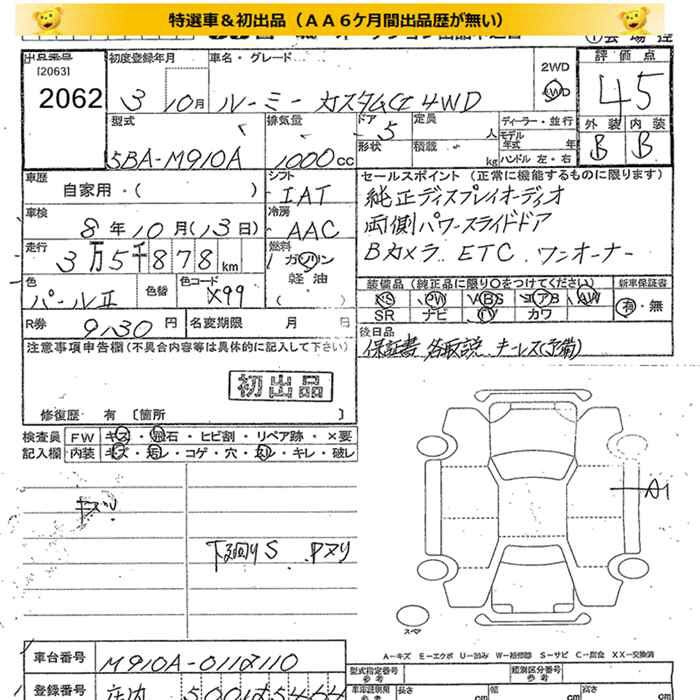 特選車&初出品(AA6ケ月間出品歴が無い)
出品番号 初度登録年月 車名・グレード 2WD 評価点
[2063]
2062 3 10月 ルーミー カスタムGT 4WD 4WD 45
型式 排気量 ドア 定員 ディーラー・並行 外装 内装
5BA-M910A 1000cc 5 人 モデル年式 年式 B B
形状 積載 kg ハンドル 左・右
車歴 シフト セールスポイント(正常に機能するものに限ります)
自家用・( ) IAT 純正ディスプレイオーディオ
車検 冷房 両側パワースライドドア
8年10月(13日) AAC Bカメラ ETC ワンオーナー
走行 燃料
3万5千878km ガソリン
軽油
( )
色 色替 色コード 装備品(純正品に限り○をつけてください) 新車保証書
パールII X99 PS PW ABS エアB AW 有・無
SR ナビ TV カワ
R券 9,130円 名変期限 月 日 後日品
注意事項申告欄(不具合内容等は具体的に記入して下さい) 保証書 各取説 キーレス(予備)
初出品
修復歴 有〔箇所 〕
検査員 FW キズ・飛石・ヒビ割・リペア跡・×要
記入欄 内装 キズ・汚レ・コゲ・穴・スレ・キレ・破レ
キズU A1
下回りS Pヌリ
スペア
A-キズ E-エクボ U-凹み W-補修跡 S-サビ C-腐食 XX-交換済
車台番号 M910A-0112110 型式指定番号 参考 類別区分番号 参考
登録番号 車庫証明用 参考 長さ cm 幅 cm 高さ cm